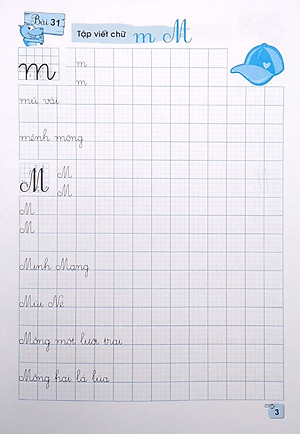 Bài 31
Tập viết chữ m M
m
m
m
mũ vải
mênh mông
M
M
M
M
M
Minh Mạng
Mũi Né
Mỏng môi lưỡi trai
Mồng hai lá lúa
3